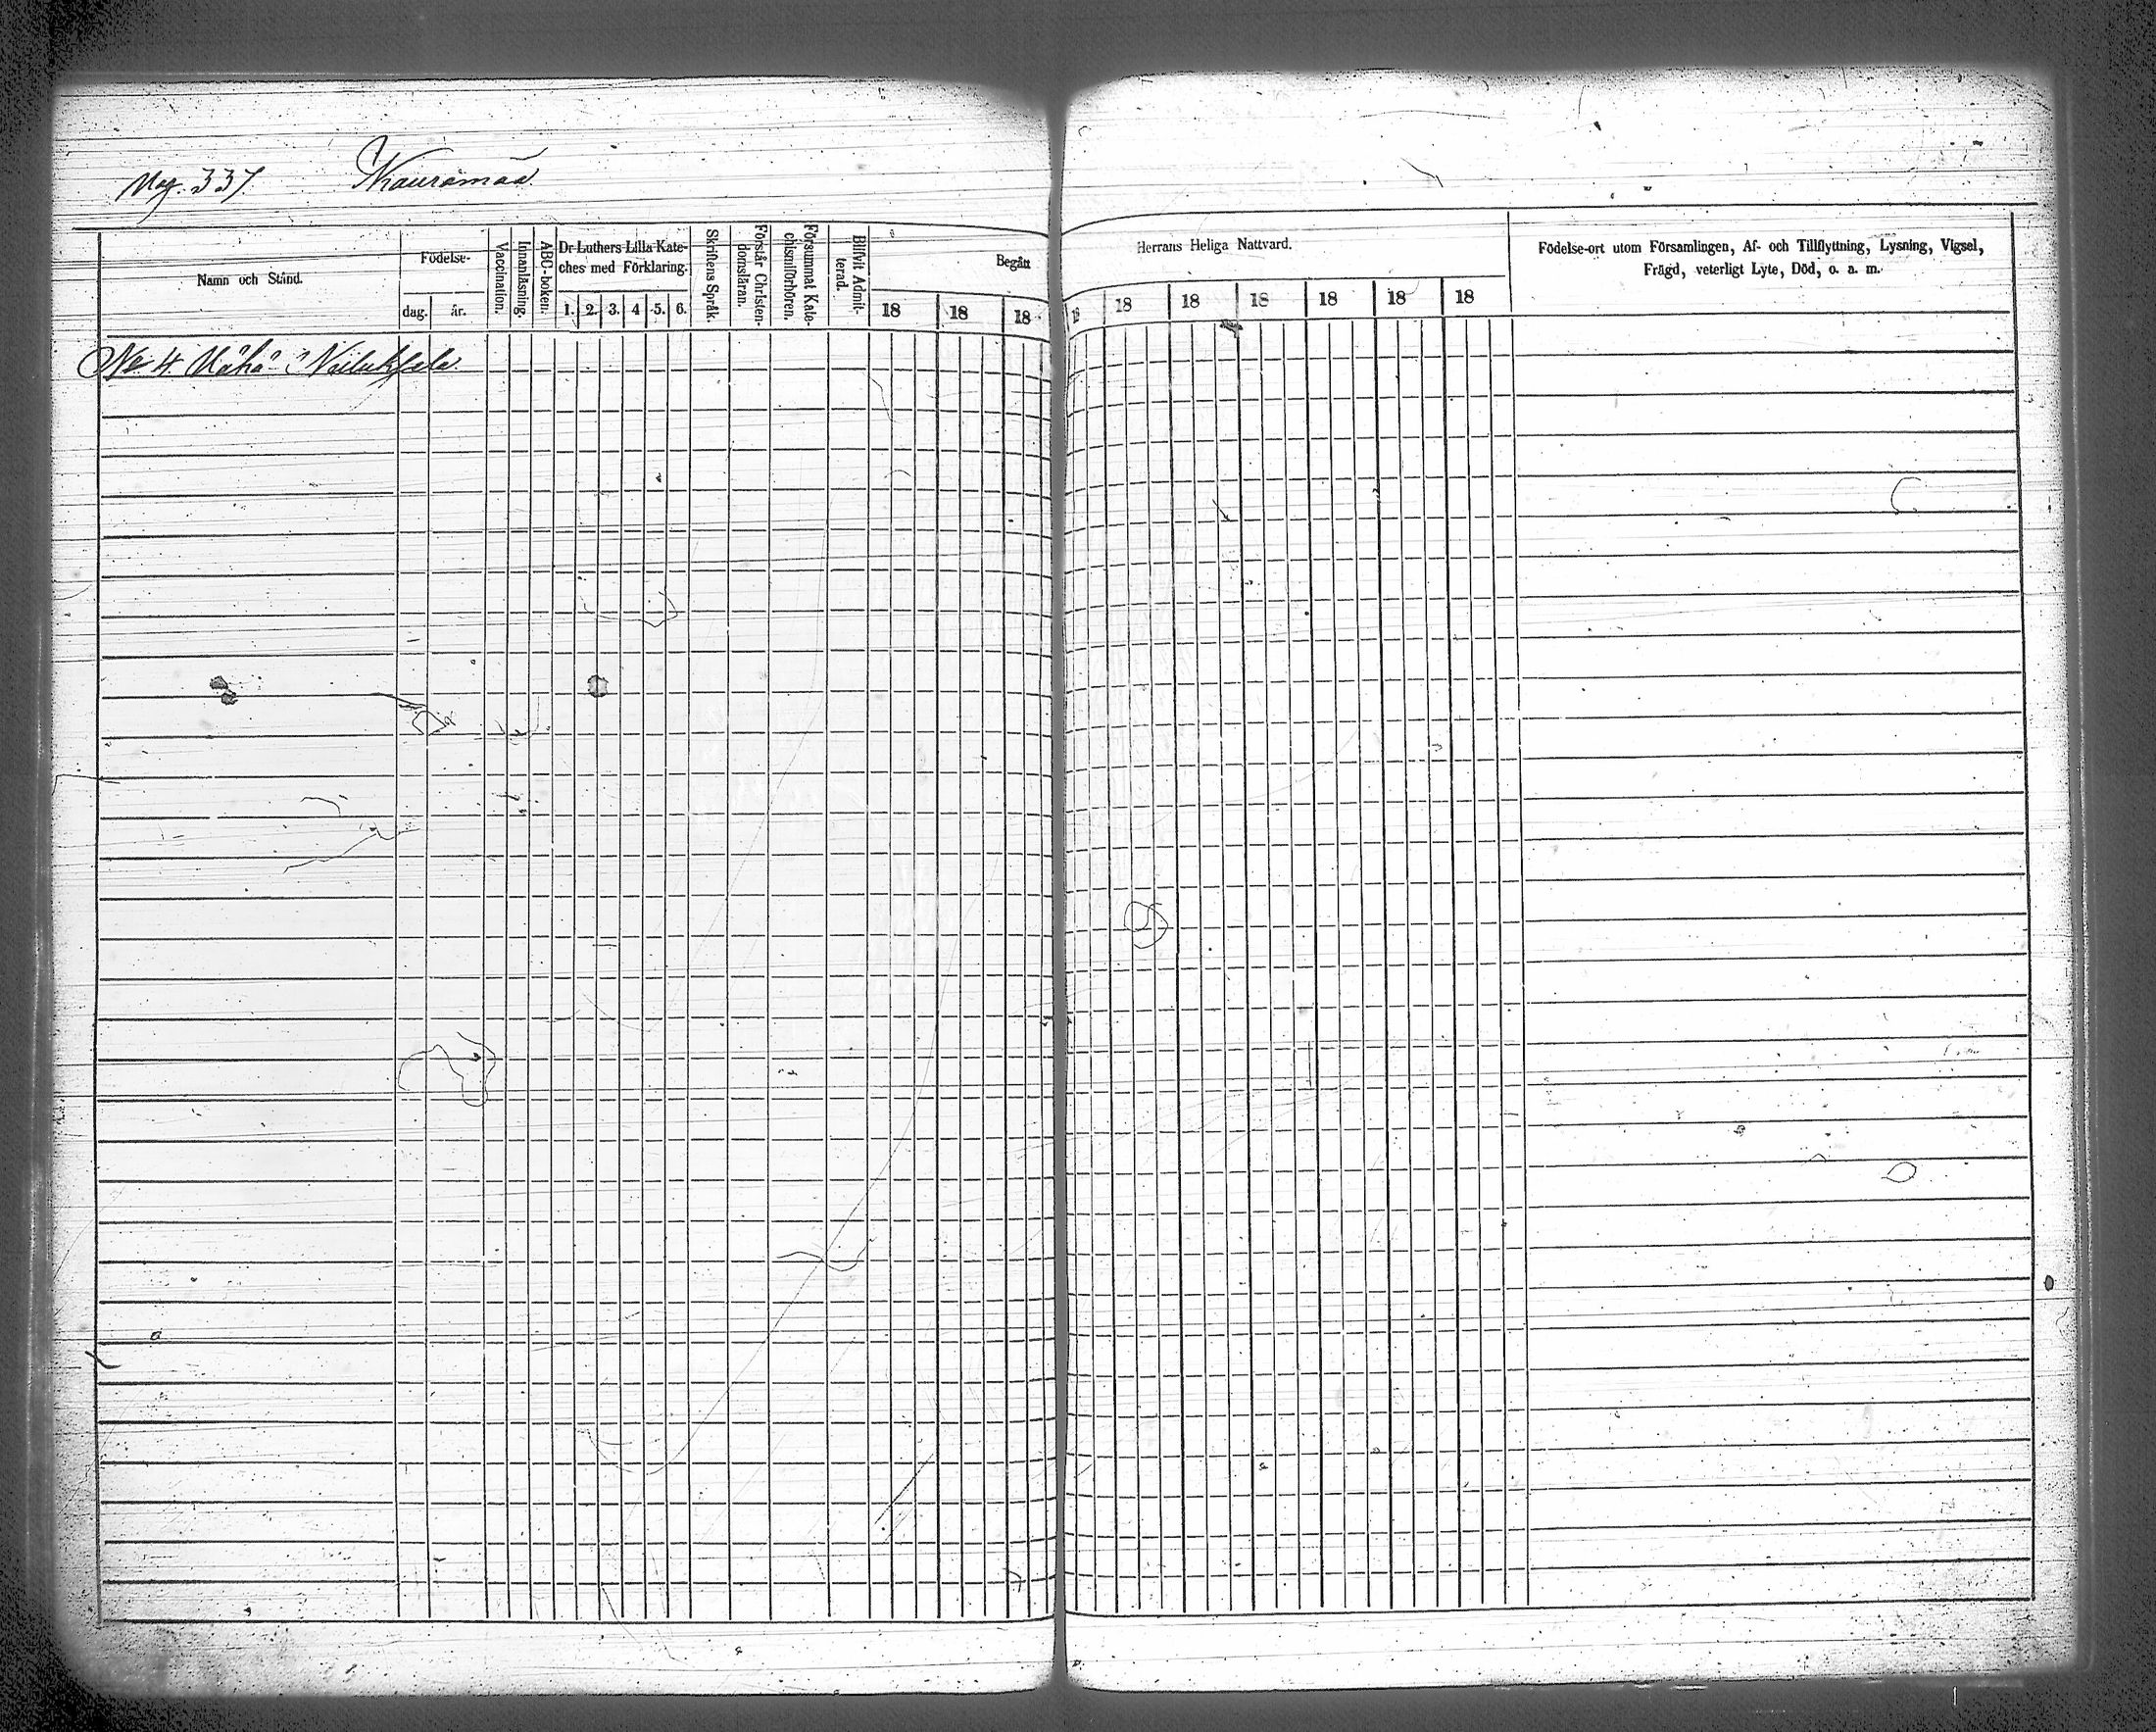 Pag. 337.
Namn och Stånd.
Födelse-
dag.
år.
Vaccination.
Innanläsning.
ABC-boken.
Dr Luthers Lilla Kate-
ches med Förklaring.
1. 2. 3. 4 5. 6.
Skriftens Språk.
Förstår Christen-
domsläran.
Försummat Kate-
chismiförhören.
Blifvit Admit-
terad.
Begått
18 18 18
Herrans Heliga Nattvard.
18 18 18 18 18 18
Födelse-ort utom Församlingen, Af- och Tillflyttning, Lysning, Vigsel,
Frägd, veterligt Lyte, Död, o. a. m.
No 4